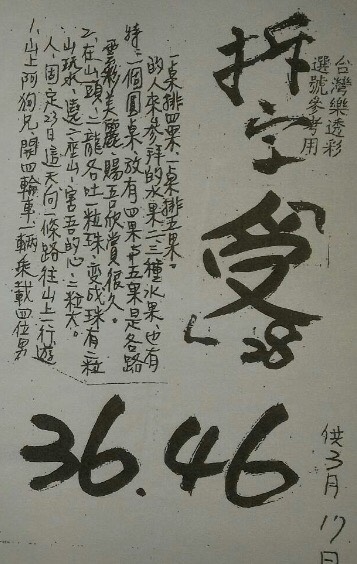 台灣樂透彩
選號參考用
拆字
「受」28
36.46
供3月17日
1.山上阿狗兄開四輪車一輛乘載四位男
人,固定23日這天向一條路往山上一行遊
山玩水,遠一座山,富吾的心,二粒大。
2.在山頭,二龍各吐一粒珠,変成珠有二粒
雲彩美麗賜吾欣賞很久。
特:二個圓桌,放有四果 五果是各路
的人來參拜的水果,三種水果,也有
一桌排四果,一桌排五果。